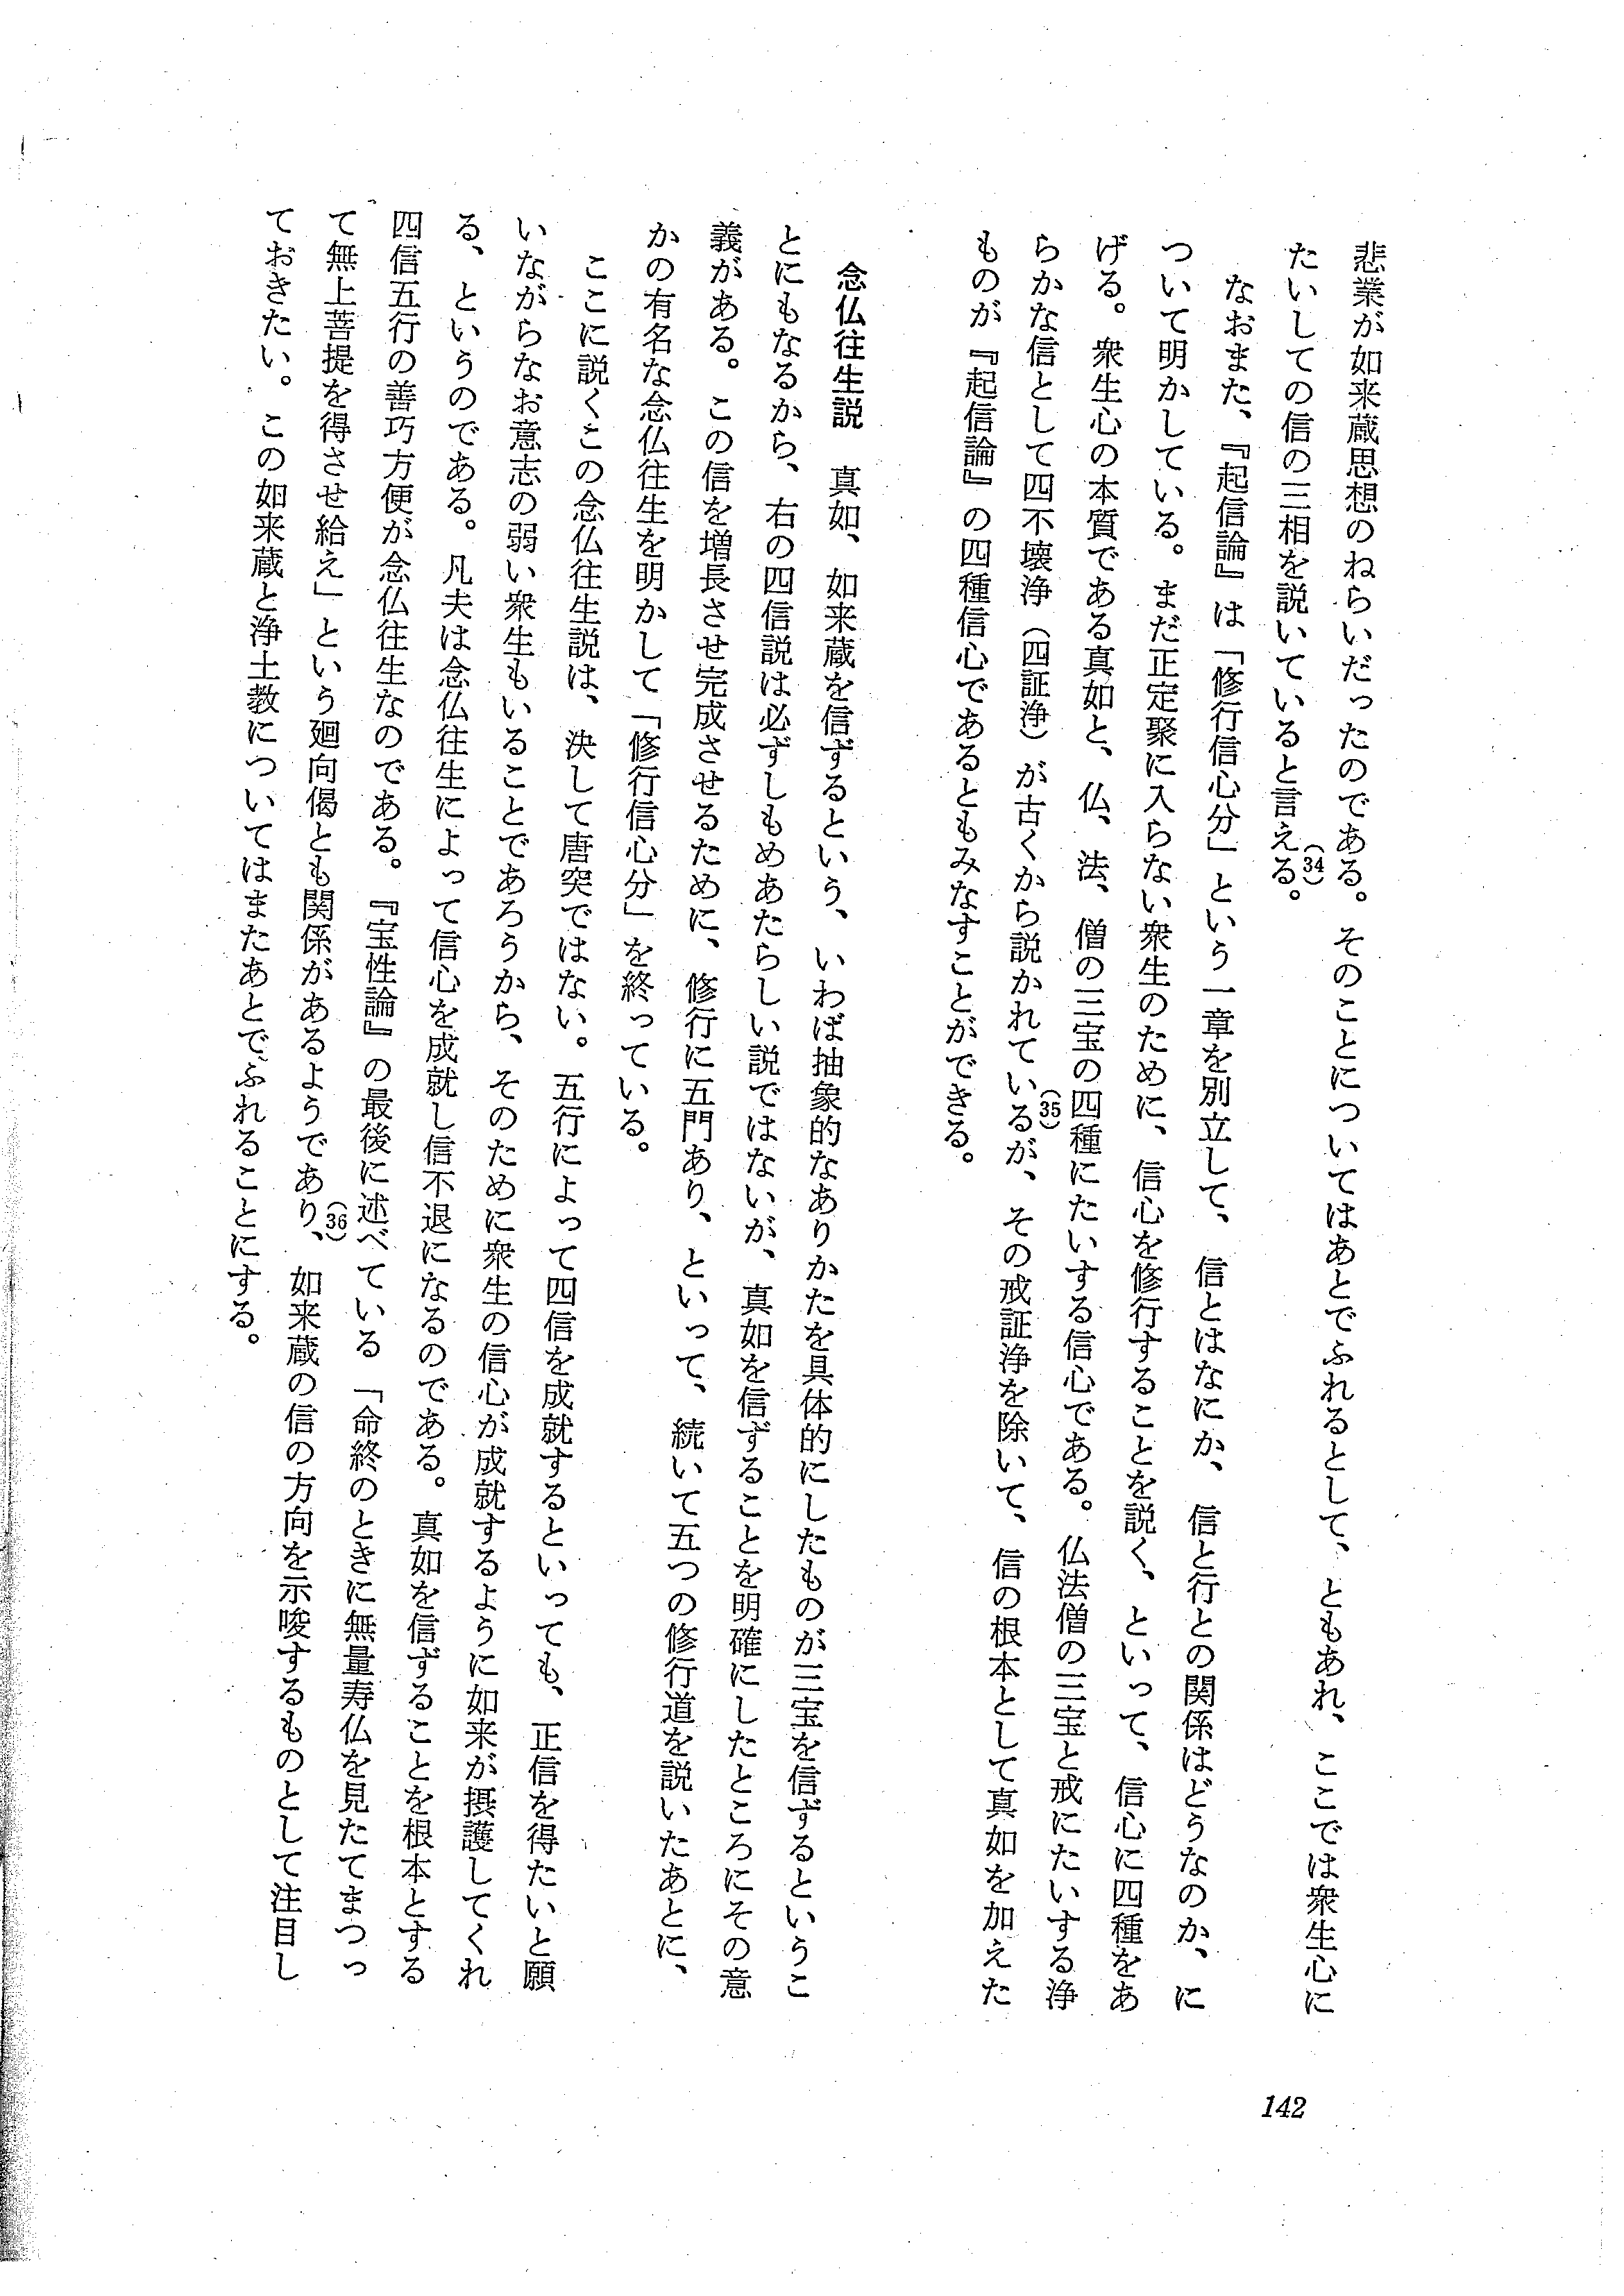 悲業が如来蔵思想のねらいだったのである。そのことについてはあとでふれるとして、ともあれ、ここでは衆生心に
たいしての信の三相を説いていると言える。(34)
なおまた、『起信論』は「修行信心分」という一章を別立して、信とはなにか、信と行との関係はどうなのか、に
ついて明かしている。まだ正定聚に入らない衆生のために、信心を修行することを説く、といって、信心に四種をあ
げる。衆生心の本質である真如と、仏、法、僧の三宝の四種にたいする信心である。仏法僧の三宝と戒にたいする浄
らかな信として四不壊浄（四証浄）が古くから説かれているが、(35)その戒証浄を除いて、信の根本として真如を加えた
ものが『起信論』の四種信心であるともみなすことができる。
念仏往生説　真如、如来蔵を信ずるという、いわば抽象的なありかたを具体的にしたものが三宝を信ずるというこ
とにもなるから、右の四信説は必ずしもめあたらしい説ではないが、真如を信ずることを明確にしたところにその意
義がある。この信を増長させ完成させるために、修行に五門あり、といって、続いて五つの修行道を説いたあとに、
かの有名な念仏往生を明かして「修行信心分」を終っている。
ここに説くこの念仏往生説は、決して唐突ではない。五行によって四信を成就するといっても、正信を得たいと願
いながらなお意志の弱い衆生もいることであろうから、そのために衆生の信心が成就するように如来が摂護してくれ
る、というのである。凡夫は念仏往生によって信心を成就し信不退になるのである。真如を信ずることを根本とする
四信五行の善巧方便が念仏往生なのである。『宝性論』の最後に述べている「命終のときに無量寿仏を見たてまつっ
て無上菩提を得させ給え」という廻向偈とも関係があるようであり、(36)如来蔵の信の方向を示唆するものとして注目し
ておきたい。この如来蔵と浄土教についてはまたあとでふれることにする。
142